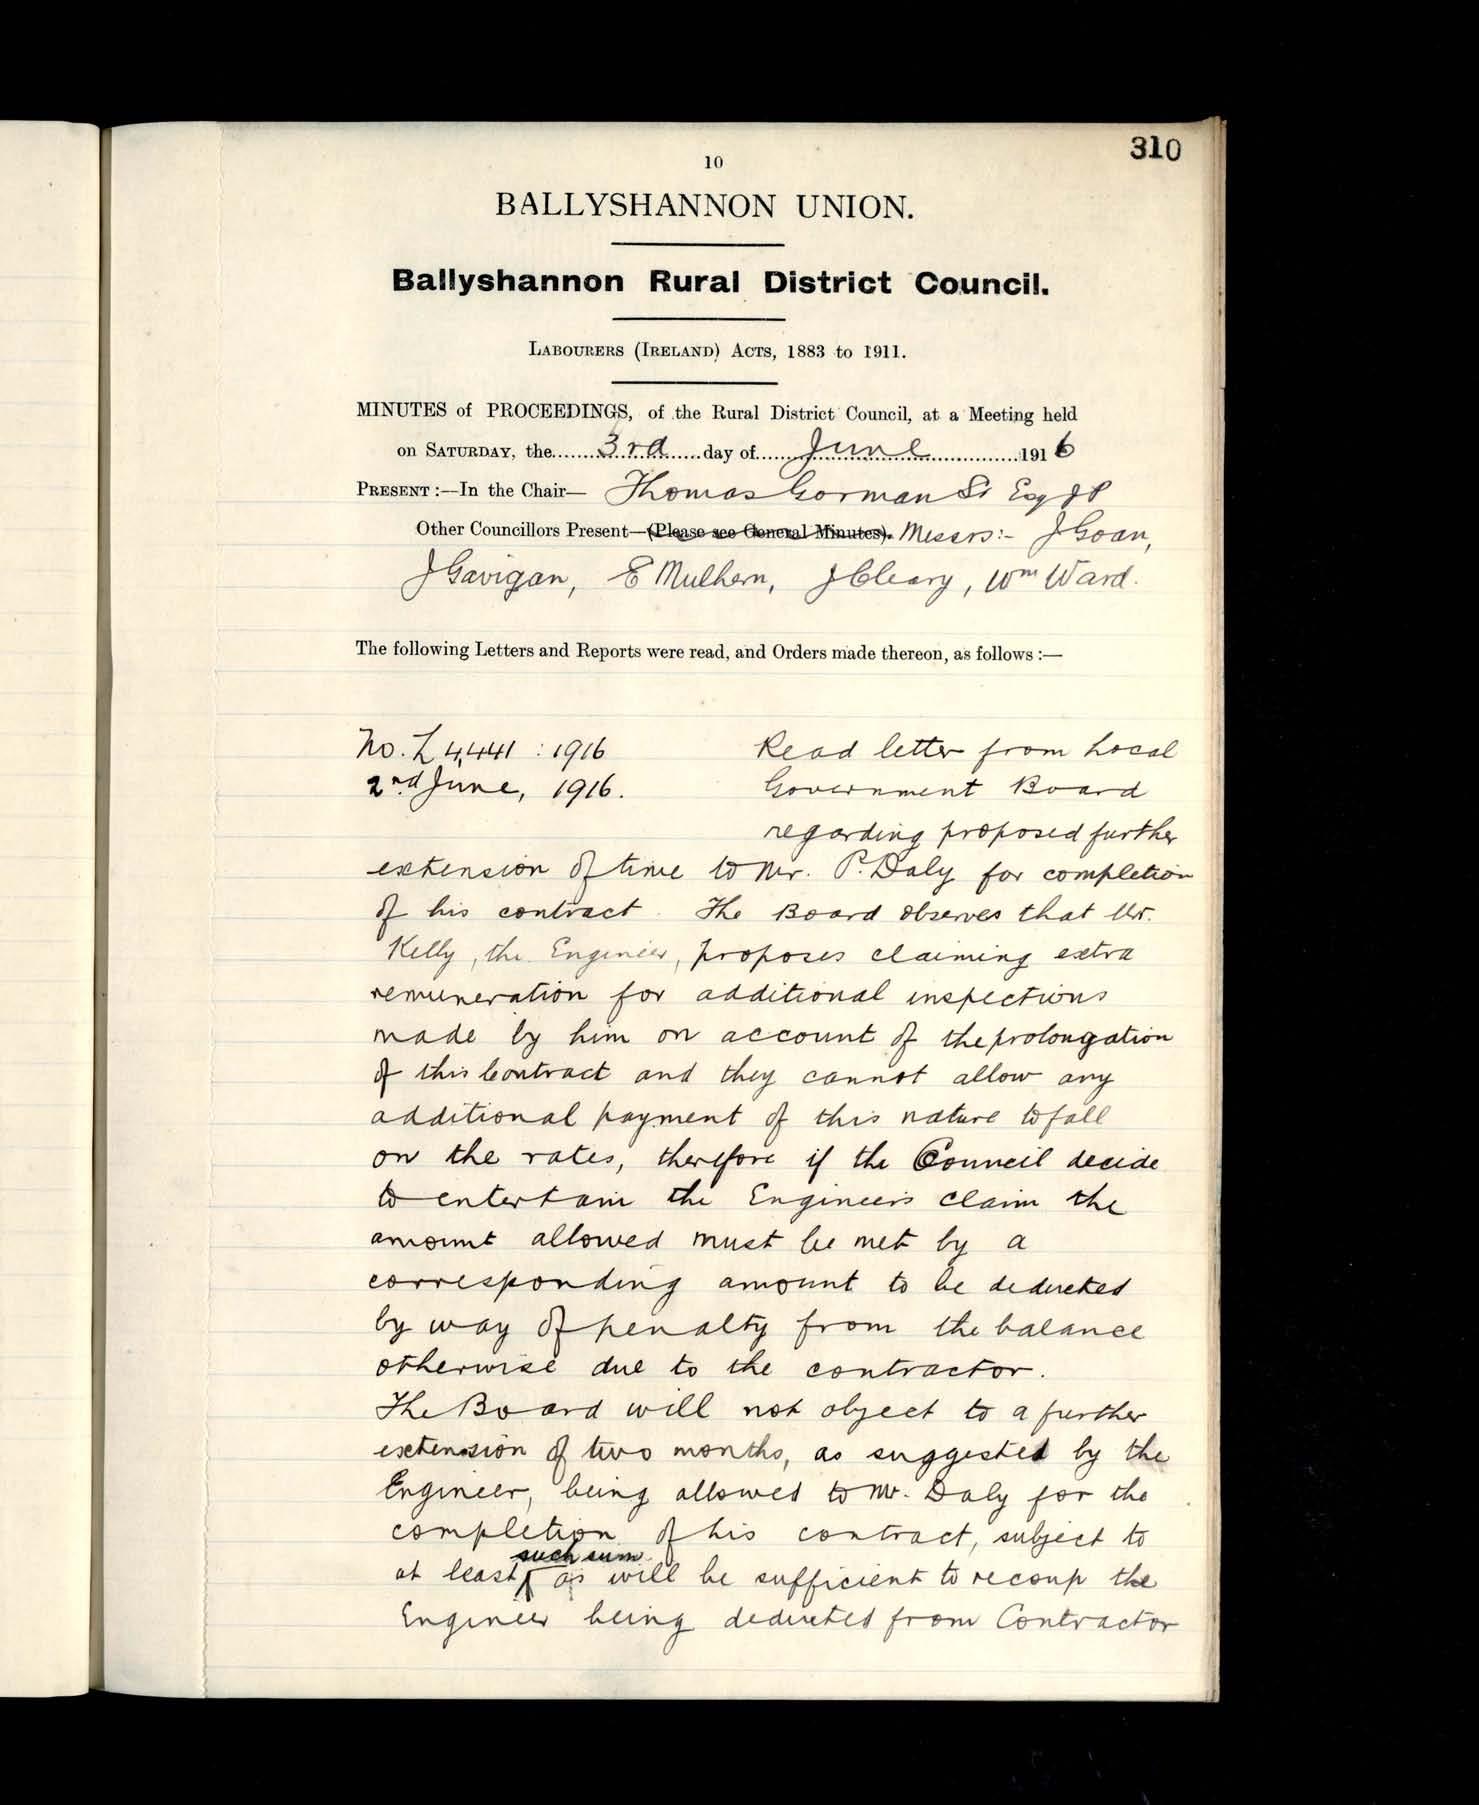 310
10
BALLYSHANNON UNION.
Ballyshannon Rural District Council.
LABOURERS (IRELAND) ACTS, 1883 to 1911.
MINUTES of PROCEEDINGS, of the Rural District Council, at a Meeting held
on SATURDAY, the 3rd day of June 1916
PRESENT :—In the Chair— Thomas Gorman Sr Esq JP
Other Councillors Present—(Please see General Minutes). Messrs:- J Goan,
J Gavigan, E Mulhern, J Cleary, Wm Ward.
The following Letters and Reports were read, and Orders made thereon, as follows :—
No. L 4,441 : 1916 Read letter from Local
2nd June, 1916. Government Board
regarding proposed further
extension of time to Mr. P. Daly for completion
of his contract. The Board observes that Mr.
Kelly, the Engineer, proposes claiming extra
remuneration for additional inspections
made by him on account of the prolongation
of this Contract and they cannot allow any
additional payment of this nature to fall
on the rates, therefore if the Council decide
to entertain the Engineers claim the
amount allowed must be met by a
corresponding amount to be deducted
by way of penalty from the balance
otherwise due to the contractor.
The Board will not object to a further
extension of two months, as suggested by the
Engineer, being allowed to Mr. Daly for the
completion of his contract, subject to
at least such sum as will be sufficient to recoup the
Engineer being deducted from Contractor